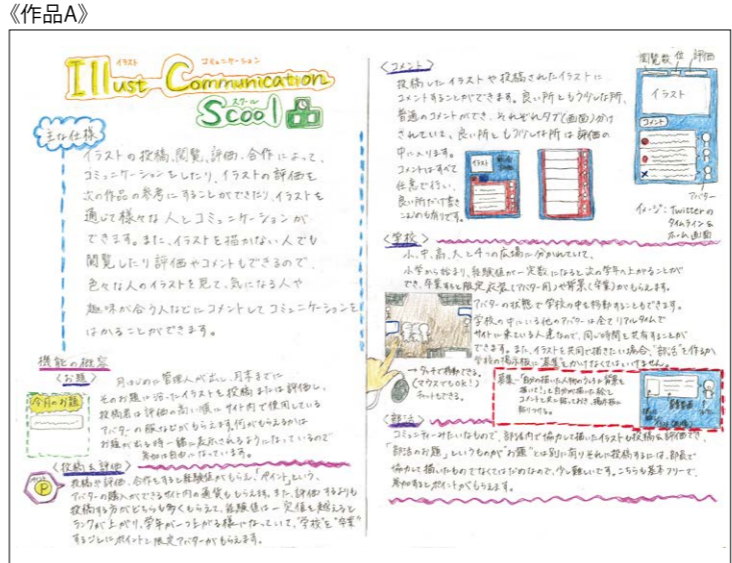 《作品A》
イラスト コミュニケーション
Illust Communication
スクール
Scool
主な仕様
イラストの投稿、閲覧、評価、合作によって、
コミュニケーションをしたり、イラストの評価を
次の作品の参考にすることができたり、イラストを
通じて様々な人とコミュニケーションが
できます。また、イラストを描かない人でも
閲覧したり評価やコメントもできるので、
色々な人のイラストを見て、気になる人や
趣味が合う人などにコメントしてコミュニケーションを
はかることができます。
機能の概容
〈お題〉
今月のお題
月はじめに管理人が出し、月末までに
そのお題に沿ったイラストを投稿または評価し、
投稿者は評価の高い順にサイト内で使用している
アバターの服などがもらえます。何がもらえるかは
お題が出る時一緒に表示されるようになっているので
参加は自由になっています。
〈投稿&評価〉
P
投稿や評価、合作をすると経験値がもらえ、「ポイント」という、
アバターの購入ができるサイト内の通貨ももらえます。また、評価するよりも
投稿する方がどちらも多くもらえて、経験値は一定値を越えると
ランクが上がり、学年が一つ上がる様になっていて、"学校"を"卒業"
するごとにポイントと限定アバターがもらえます。
〈コメント〉
投稿したイラストや投稿されたイラストに
コメントすることができます。良い所ともう少しな所、
普通のコメントができ、それぞれタブ(画面)分け
されていて、良い所ともう少しな所は評価の
中に入ります。
コメントはすべて
任意で行い、
良い所だけ書き
こむのも有りです。
イラスト
閲覧数 位 評価
イラスト
コメント
アバター
イメージ:Twitterの
タイムライン&
ホーム画面
〈学校〉
小、中、高、大と4つの広場に分かれていて、
小学から始まり、経験値が一定数になると次の学年に上がることが
でき、卒業すると限定衣装(アバター用)や背景(学校)がもらえます。
アバターの状態で学校の中を移動することもできます。
学校の中にいる他のアバターは全てリアルタイムで
サイトに来ている人達なので、同じ時間を共有することが
できます。また、イラストを共同で描きたい場合、"部活"を作るか、
学校の掲示板に"募集"をかけなくてはいけません。
→タッチで移動できる。
(マウスでもOK!)
チャットもできる。
募集…「自分の描いた人物のうしろに背景を
描いて!」と自分が描いた絵と
コメントを
〈部活〉
コミュニティーみたいなもので、部活内で協力して描いたイラストも投稿&評価でき、
「部活のお題」というものが"お題"とは別に有りそれに投稿するには、部員で
協力して描いたものでなくてはだめなので、少し難しいです。こちらも基本フリーで、
参加するとポイントがもらえます。